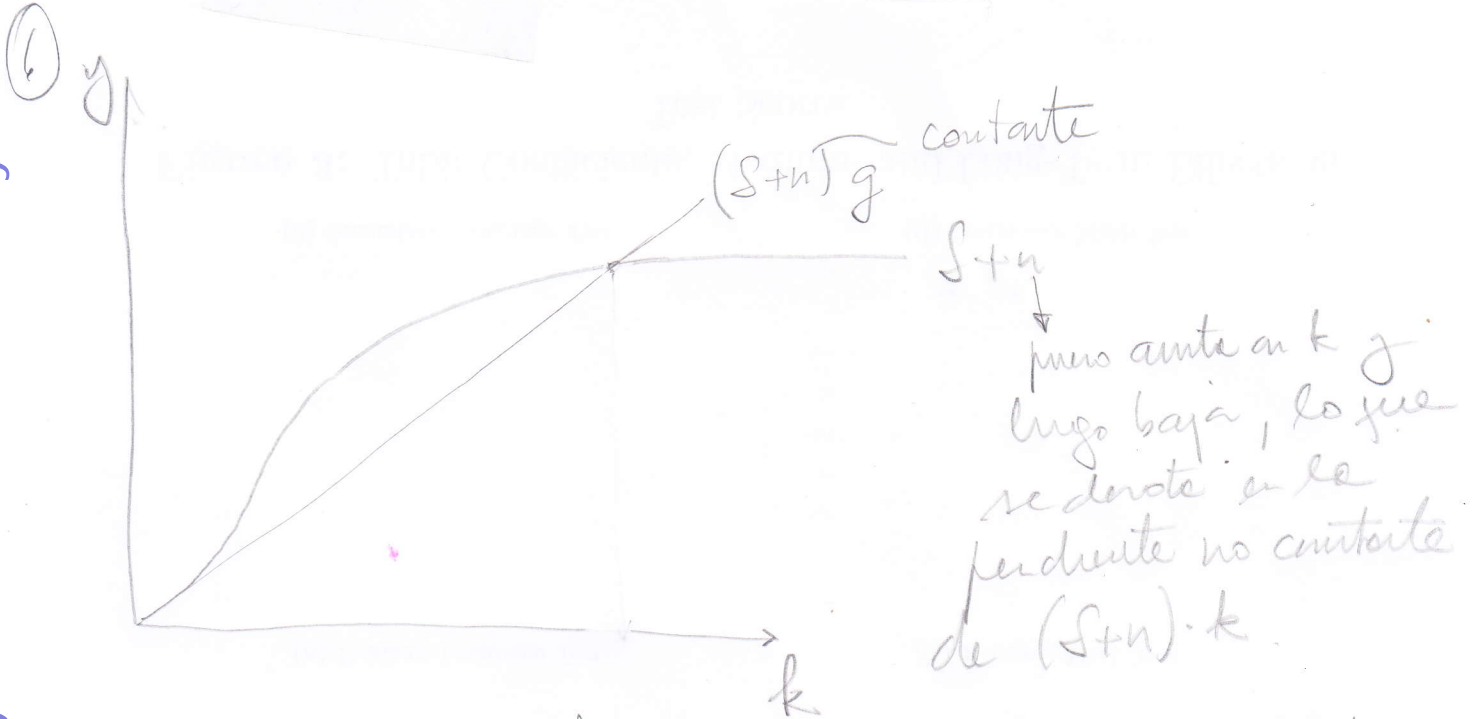 6
y
contante
(δ+n) g
δ+n
pues aunta en k y
lugo baja, lo que
se denota en la
pendiente no contante
de (δ+n)·k
k